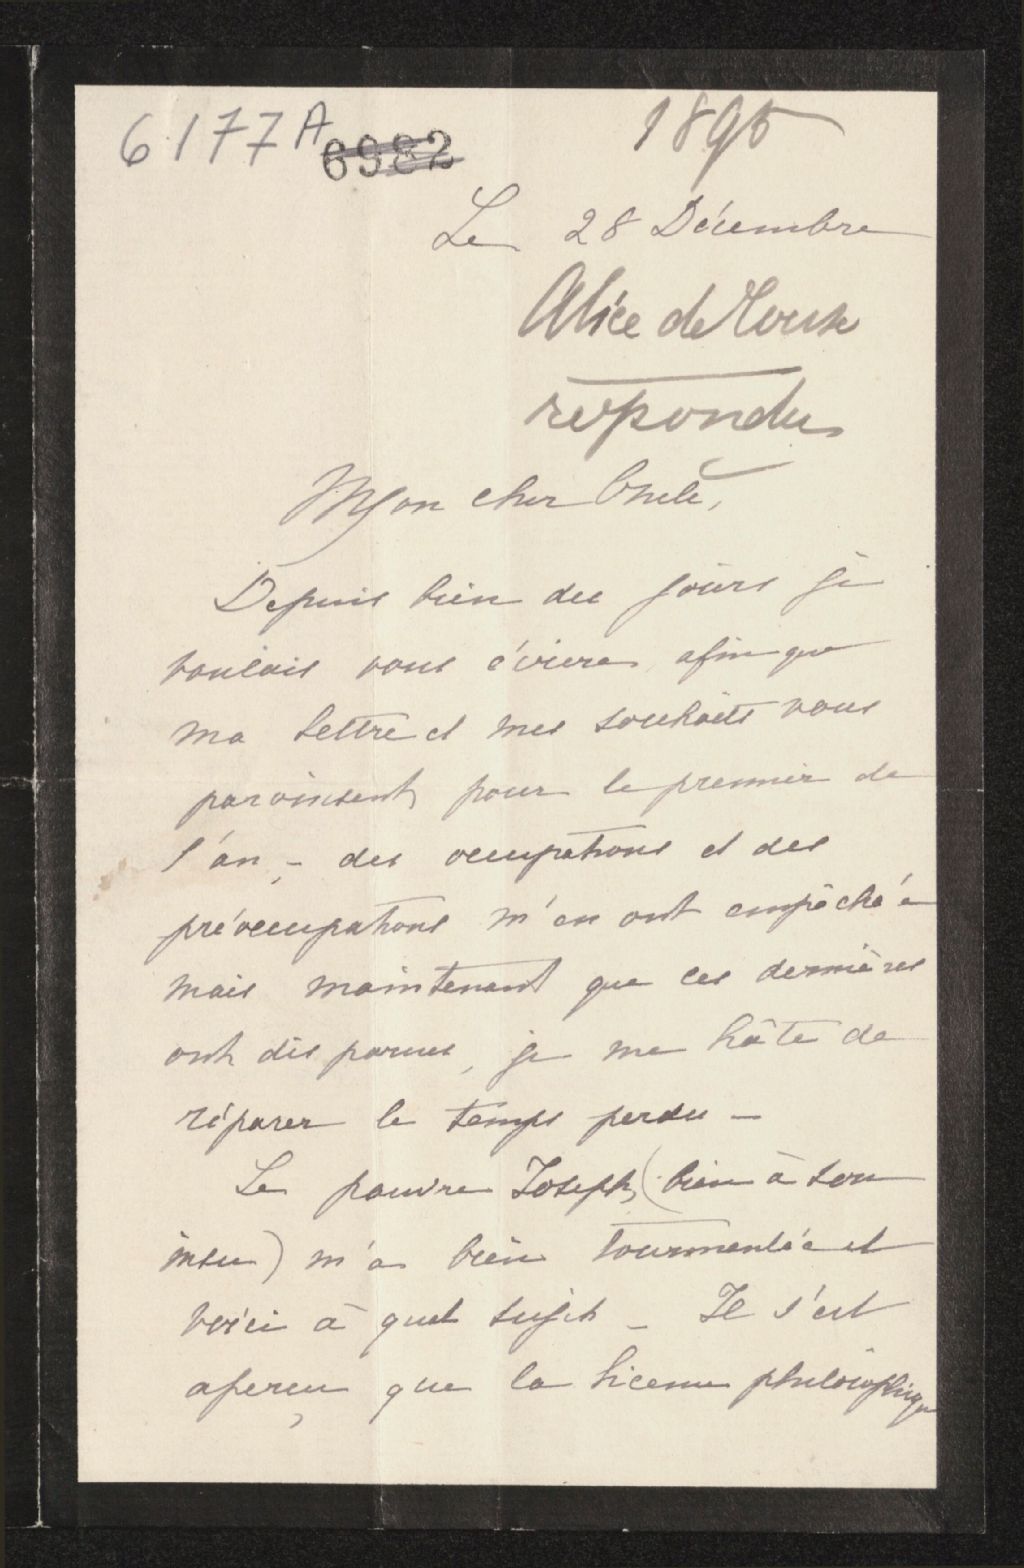 6177A 6982
1895
Le 28 Décembre
Alice de
repondu
Mon cher Oncle,
Depuis bien des jours je
voulais vous écrire, afin que
ma lettre et mes souhaits vous
parvinsent pour le premier de
l'an, - des occupations et des
préoccupations m'en ont empêchée
mais maintenant que ces dernières
ont disparues, je me hâte de
réparer le temps perdu -
Le pauvre Joseph (bien à son
insu) m'a bien tourmentée et
voici à quel sujet - Il s'est
aperçu que la licence philosophique